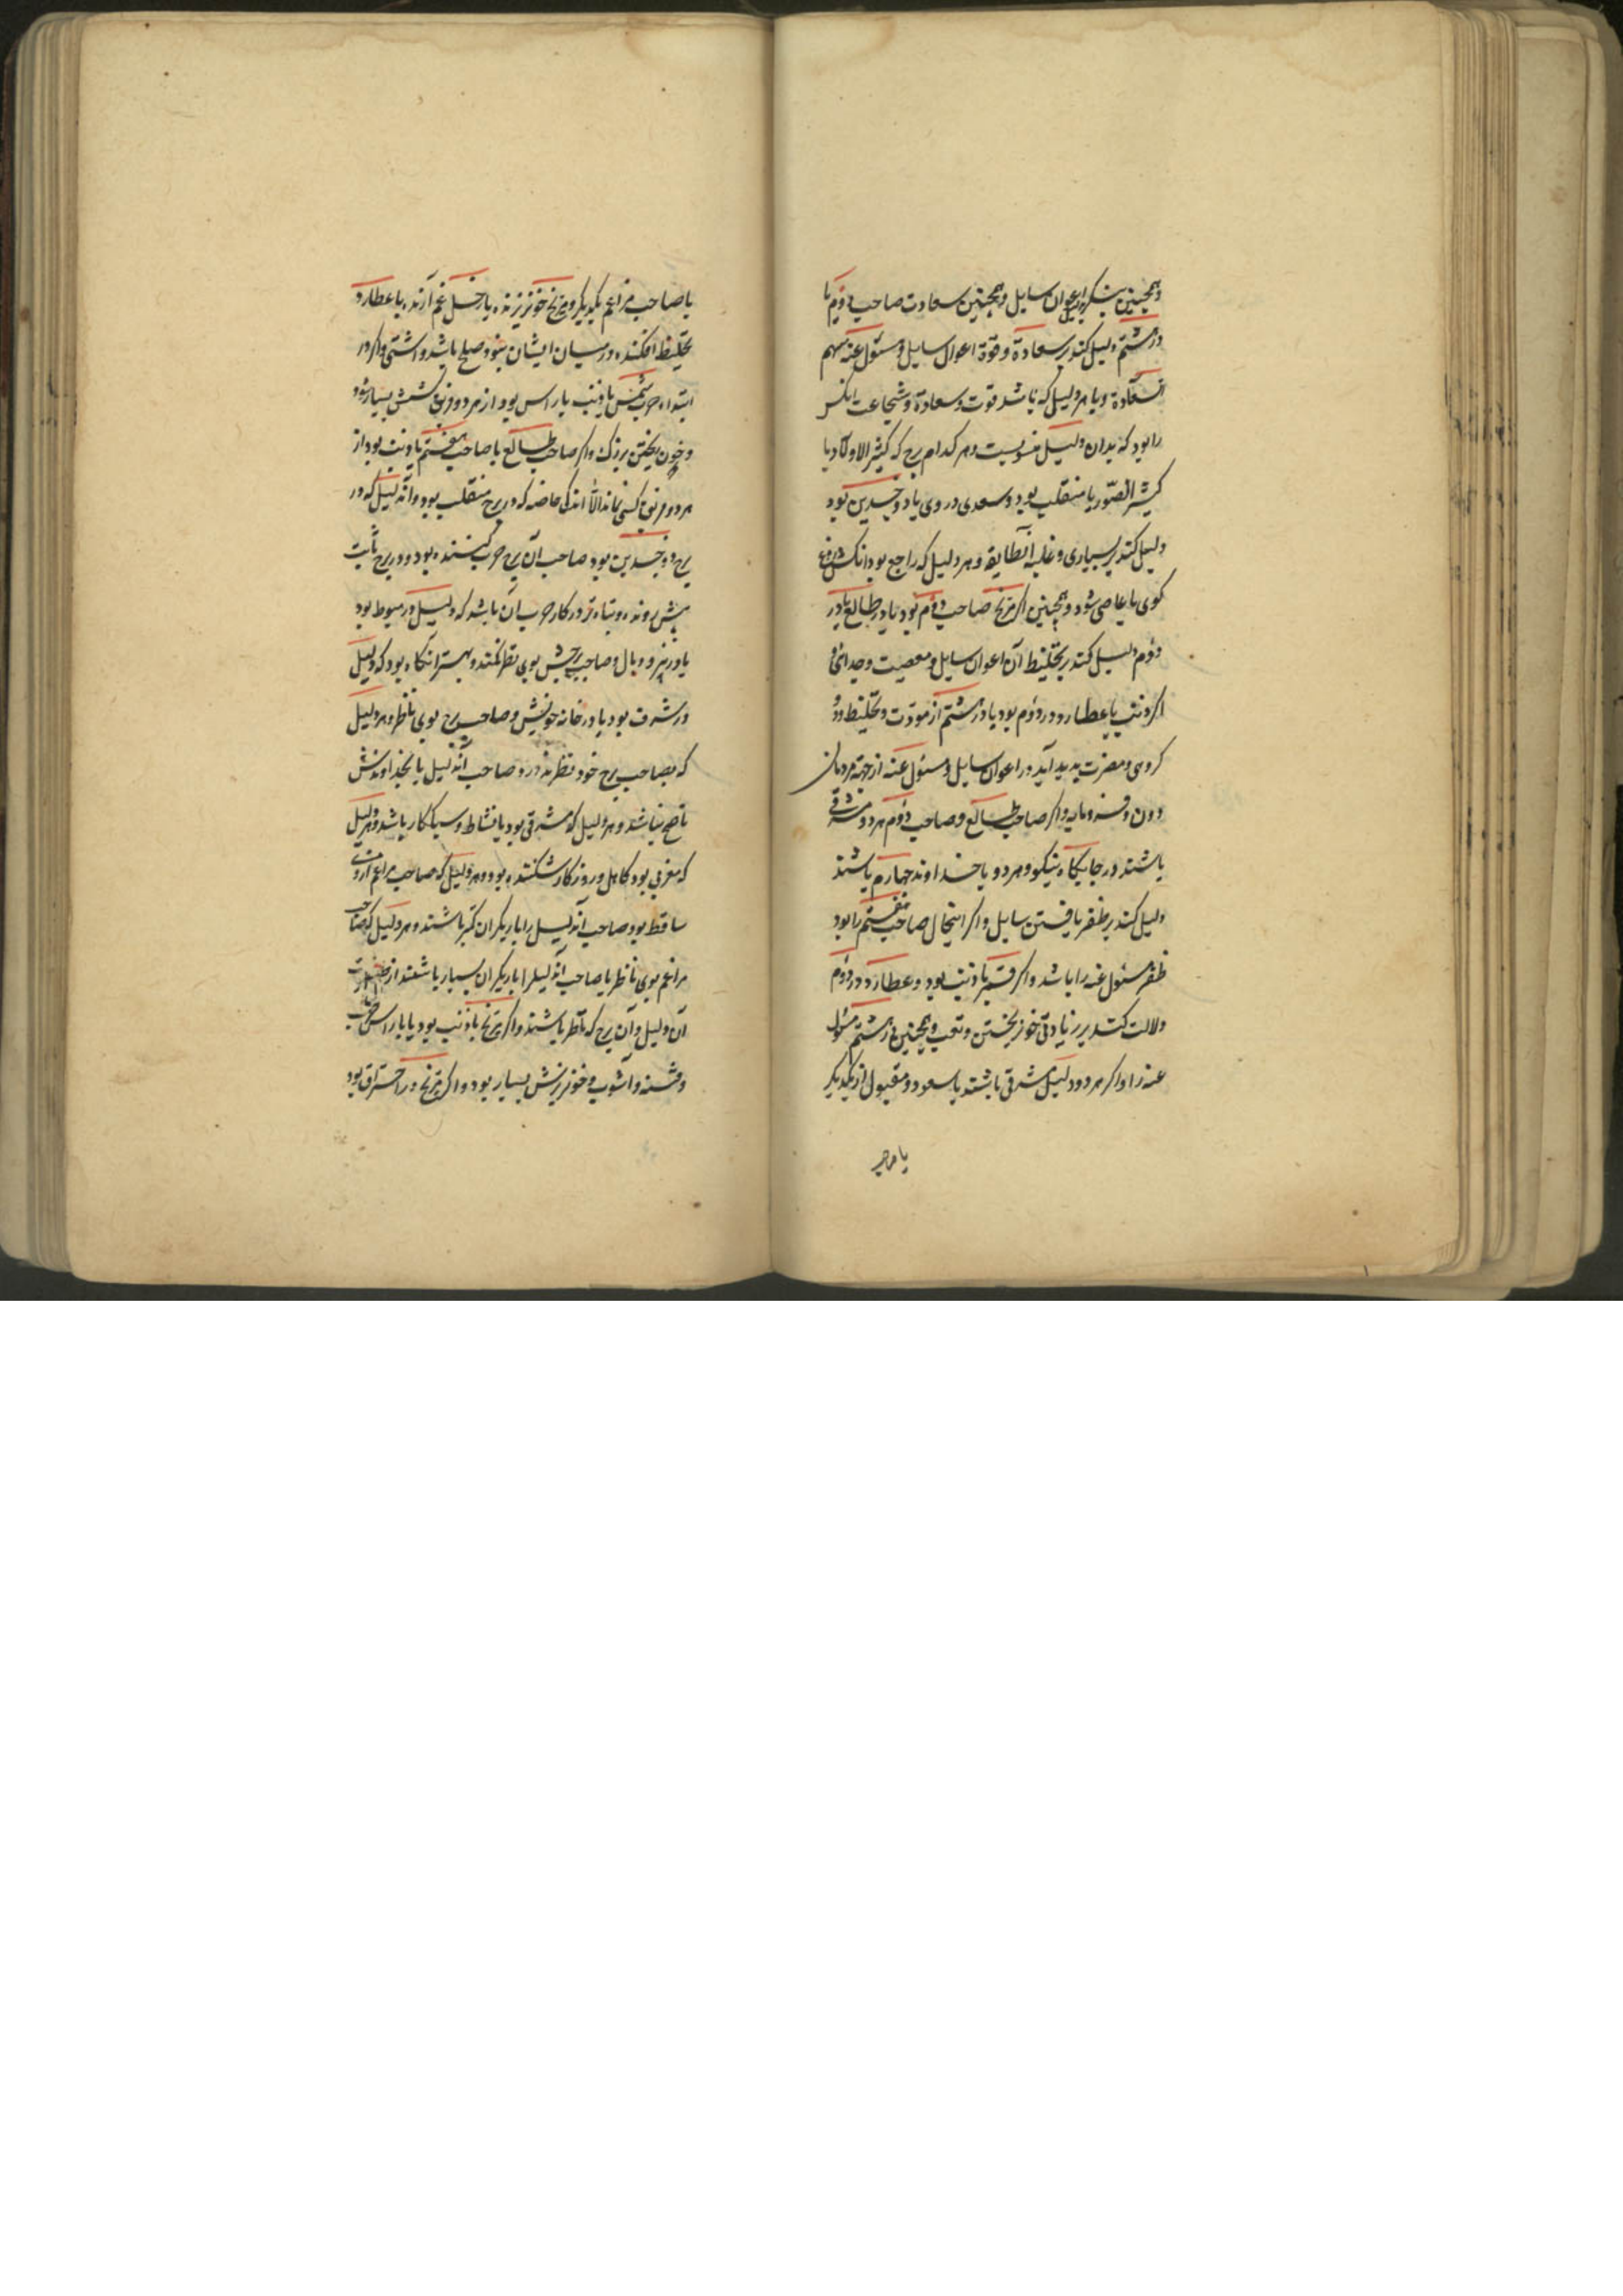 وهمچنین بنگر بدلیل اعوان سایل وهمچنین سعادت صاحب دوم یا
در هشتم دلیل کند بر سعادة وقوة اعوان سایل ومسئول عنه وسهم
السعادة وبا هر دلیل که باشد قوت وسعادة وشجاعت انکس
را بود که بدان دلیل منسوبست وهر کدام برج که کثیر الاولاد یا
کثیر الصور یا منقلب بود وسعدی در وی یا ذو جسدین بود
دلیل کند بر بسیاری وغلبه آنطایفه وهر دلیل که راجع بود انکس دروغ
کوی یا عاصی شود وهمچنین اکر مریخ صاحب دوم بود یا در طالع یا در
دوم دلیل کند بر تخلیط آن اعوان سایل ومعصیت وجدائی و
اکر ذنب با عطارد در دوم بود یا در هشتم از مودت وتخلیط دو
کروهی ومضرت پدید آید در اعوان سایل ومسئول عنه از جهة مردمان
دون وفرومایه واکر صاحب طالع وصاحب دوم هر دو مشرقی
باشند در جایکاه نیکو وهر دو با خداوند چهارم باشند
دلیل کند بر ظفر یافتن سایل واکر اینحال صاحب هفتم را بود
ظفر مسئول عنه را باشد واکر قمر با ذنب بود وعطارد در دوم
دلالت کند بر زیادتی خون ریختن وتعب وهمچنین در هشتم مسئول
عنه را واکر هر دو دلیل مشرقی باشند با سعود ومقبول از یکدیکر
یا صاحب
یا صاحب مزاعم یکدیکر ومریخ خونریزنده یا زحل غم آرنده یا عطارد
تخلیط افکننده در میان ایشان نبود صلح باشد واشتی واکر در
ابتداء حرب شمس با ذنب یا راس بود از هر دو فریق کشش بسیار شود
وخون ریختن بزرک واکر صاحب طالع یا صاحب هفتم با ذنب بود از
هر دو فریق کسی نماند الا اندکی خاصه که در برج منقلب بود وآندلیل که در
برج ذو جسدین بود صاحب آن برج حرب کننده بود ودر برج ثابت
پیش رونده وتباه تر در کار حرب آن باشد که دلیل در هبوط بود
یا در وبال وصاحب برجش بوی نظر نکند وبهتر آنکاه بود که دلیل
در شرف بود یا در خانه خویش وصاحب برج بوی ناظر وهر دلیل
که بصاحب برج خود نظر ندارد صاحب آندلیل با خداوندش
ناصح نباشد وهر دلیل که مشرقی بود با نشاط وسبکار باشد وهر دلیل
که مغربی بود کاهل وروزکار شکننده بود وهر دلیل که صاحب مزاعم از وی
ساقط بود صاحب آندلیل را یاریکران کمتر باشند وهر دلیل که صاحب
مزاعم بوی ناظر یا صاحب آندلیلرا یاریکران بسیار باشند از
آن دلیل وآن برج که ناظر باشند واکر مریخ با ذنب بود یا با راس حرب
وفتنه وآشوب وخونریزش بسیار بود واکر مریخ در احتراق بود